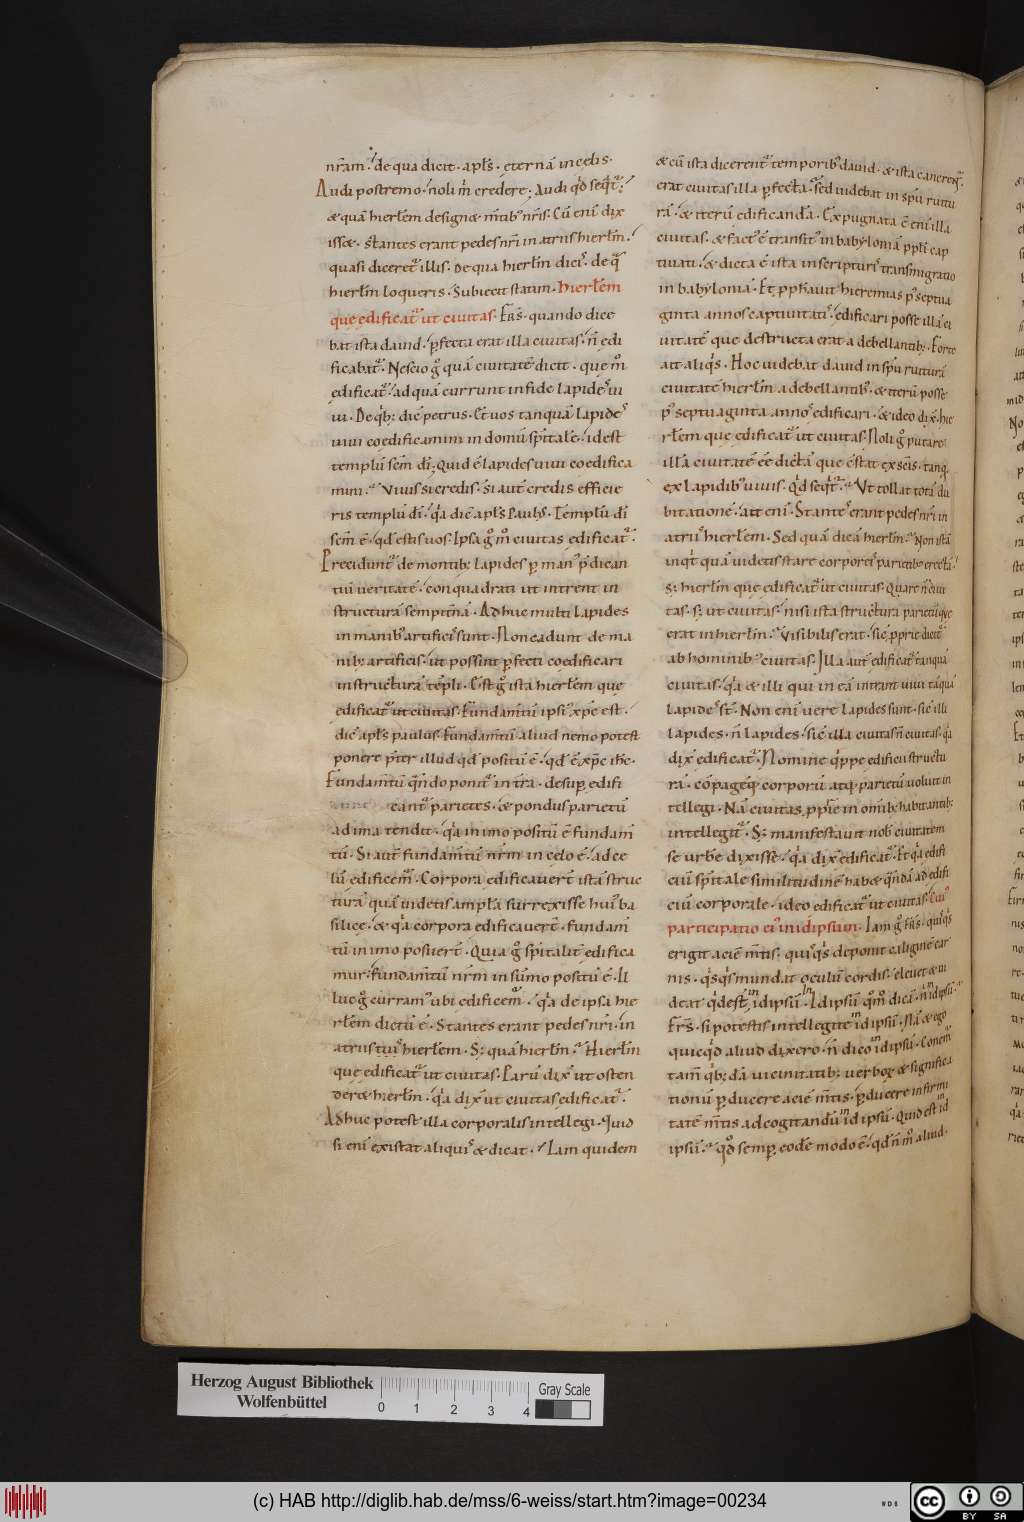 nr̄am · de qua dicit · apl̄s · ęternā in cęlis ·
Audi postremo · noli m̄ credere · Audi qđ seqt̄ ·
& quā hierl̄em designet mentib; nr̄is · Cū enī dix
isset · stantes erant pedes nr̄i in atriis hierl̄m ·
quasi diceret̄ illis · De qua hierl̄m dicis · de q̄
hierl̄m loqueris · Subiecit statim · hierl̄em
que ędificat̄ ut ciuitas · Fr̄s · quando dice
bat ista dauid · ꝑfecta erat illa ciuitas · n̄ edi
ficabat̄ · Nescio g̊ quā ciuitatē dicit · que m̊
ędificat̄ · ad quā currunt in fide lapides ui
ui · De q̄b; dic̄ petrus · Et uos tanquā lapides
uiui coędificamini in domū sp̄italē · id est
templū sc̄m dī · Quid ē lapides uiui coedifica
mini · Viuis si credis · si aut̄ credis effice
ris templū dī · q̄a dic̄ apl̄s Paulus · Templū dī
sc̄m ē · qđ estis uos · Ipsa g̊ m̊ ciuitas ędificat̄ ·
Precidunt̄ de montib; lapides ꝑ man; p̄dican
tiū ueritatē · conquadrati ut intrent in
structurā sempit̄nā · Adhuc multi lapides
in manib; artificis sunt · Non cadunt de ma
nib; artificis · ut possint ꝑfecti coedificari
in structurā tēpli · Est g̊ ista hierl̄em que
ędificat̄ ut ciuitas · Fundam̄tū ipsius xp̄c est ·
dic̄ apl̄s paulus · Fundam̄tū aliud nemo potest
ponere p̄ter illud qđ positū ē · qđ ē xp̄c ih̄c ·
Fundam̄tū q̄ndo ponit̄ in t̄ra · desuꝑ edifi
cant̄ parietes · & pondus parietū
ad ima tendit · q̄a in imo positū ē fundam̄
tū · Si aut̄ fundam̄tū nr̄m in cęlo ē · ad cę
lū edificem̄ · Corpora edificauer̄t istā struc
turā quā uidetis amplā surrexisse hui; ba
silicę · & q̄a corpora edificauer̄t · fundam̄
tū in imo posuer̄t · Quia g̊ sp̄italit̄ edifica
mur · fundam̄tū nr̄m in sūmo positū ē · Il
luc g̊ curram; ubi edificem̄ · q̄a de ipsa hie
rl̄em dictū ē · Stantes erant pedes nr̄i · in
atriis tuis hierl̄em · S; quā hierl̄m · Hierl̄m
que ędificat̄ ut ciuitas · Parū dix̄ ut osten
deret hierl̄m · q̄a dix̄ ut ciuitas edificat̄ ·
Adhuc potest illa corporalis intellegi · Quid
si enī existat aliquis & dicat · Iam quidem
& cū ista dicerent̄ temporib; dauid · & ista canerent̄ ·
erat ciuitas illa ꝑfecta · sed uidebat in sp̄u ruitu
rā · & iterū edificandā · Expugnata ē enī illa
ciuitas · & fact; ē transit; in babyloniā pp̄li cap
tiuati · & dicta ē ista in scripturis transmigratio
in babyloniā · Et p̄phauit hieremias p; septua
ginta annos captiuitatis · edificari posse illā ci
uitatē que destructa erat a debellantib; · Forte
ait aliq̄s · Hoc uidebat dauid in sp̄u ruiturā
ciuitatē hierl̄m a debellantib; · & iterū posse
p; septuaginta annos edificari · & ideo dix̄ · hie
rl̄em que edificat̄ ut ciuitas · Noli g̊ putare
illā ciuitatē eē dictā que cstat ex sc̄is · tanq̄
ex lapidib; uiuis · Qđ seqt̄ · Vt tollat totā du
bitationē · ait enī · Stantes erant pedes nr̄i in
atriis hierl̄em · Sed quā dicā hierl̄m · Non istā
inqt̄ quā uidetis stare corporeis parietib; erectā ·
S; hierl̄m que edificat̄ ut ciuitas · Quare n̄ ciui
tas · s; ut ciuitas · nisi ista structura parietū que
erat in hierl̄m · Visibilis erat · sic ꝓprie dicit̄
ab hominib; ciuitas · Illa aut̄ edificat̄ tanquā
ciuitas · q̄a & illi qui in eā intrant uiui tāquā
lapides st̄ · Non enī uere lapides sunt · sic illi
lapides · n̄ lapides · sic illa ciuitas n̄ ciuitas · q̄a
dix̄ edificat̄ · Nomine q̄ppe edificii structu
rā · cōpagēq; corporū atq; parietū uoluit in
tellegi · Nā ciuitas ꝓprie in om̄ib; habitantib;
intellegit̄ · S; manifestauit nob̄ ciuitatem
se urbē dixisse · q̄a dix̄ edificat̄ · Et q̄a edifi
ciū sp̄itale similitudinē habet q̄ndā ad edifi
ciū corporale · ideo edificat̄ ut ciuitas · Cui;
participatio ei; in idipsum · Iam g̊ fr̄s · quisq̄s
erigit aciē m̄tis · quisq̄s deponit caliginē car
nis · q̄sq̄s mundat oculū cordis · eleuet & ui
deat qđ est idipsū · Idipsū q̊m̊ dicā · n̄ idipsū ·
Fr̄s · si potestis intellegite idipsū · Nā & ego
quicqđ aliud dixero · n̄ dico idipsū · Conem̄
tam̄ q̄b;dā uicinitatib; uerborum & significa
tionū ꝑducere aciē m̄tis · ꝑducere infirmi
tatē m̄tis ad cogitandū idipsū · Quid est id
ipsū · qđ semꝑ eodē modo ē · qđ n̄ m̊ aliud ·
Herzog August Bibliothek
Wolfenbüttel
0 1 2 3 4
Gray Scale
(c) HAB http://diglib.hab.de/mss/6-weiss/start.htm?image=00234
WDB
cc
BY SA